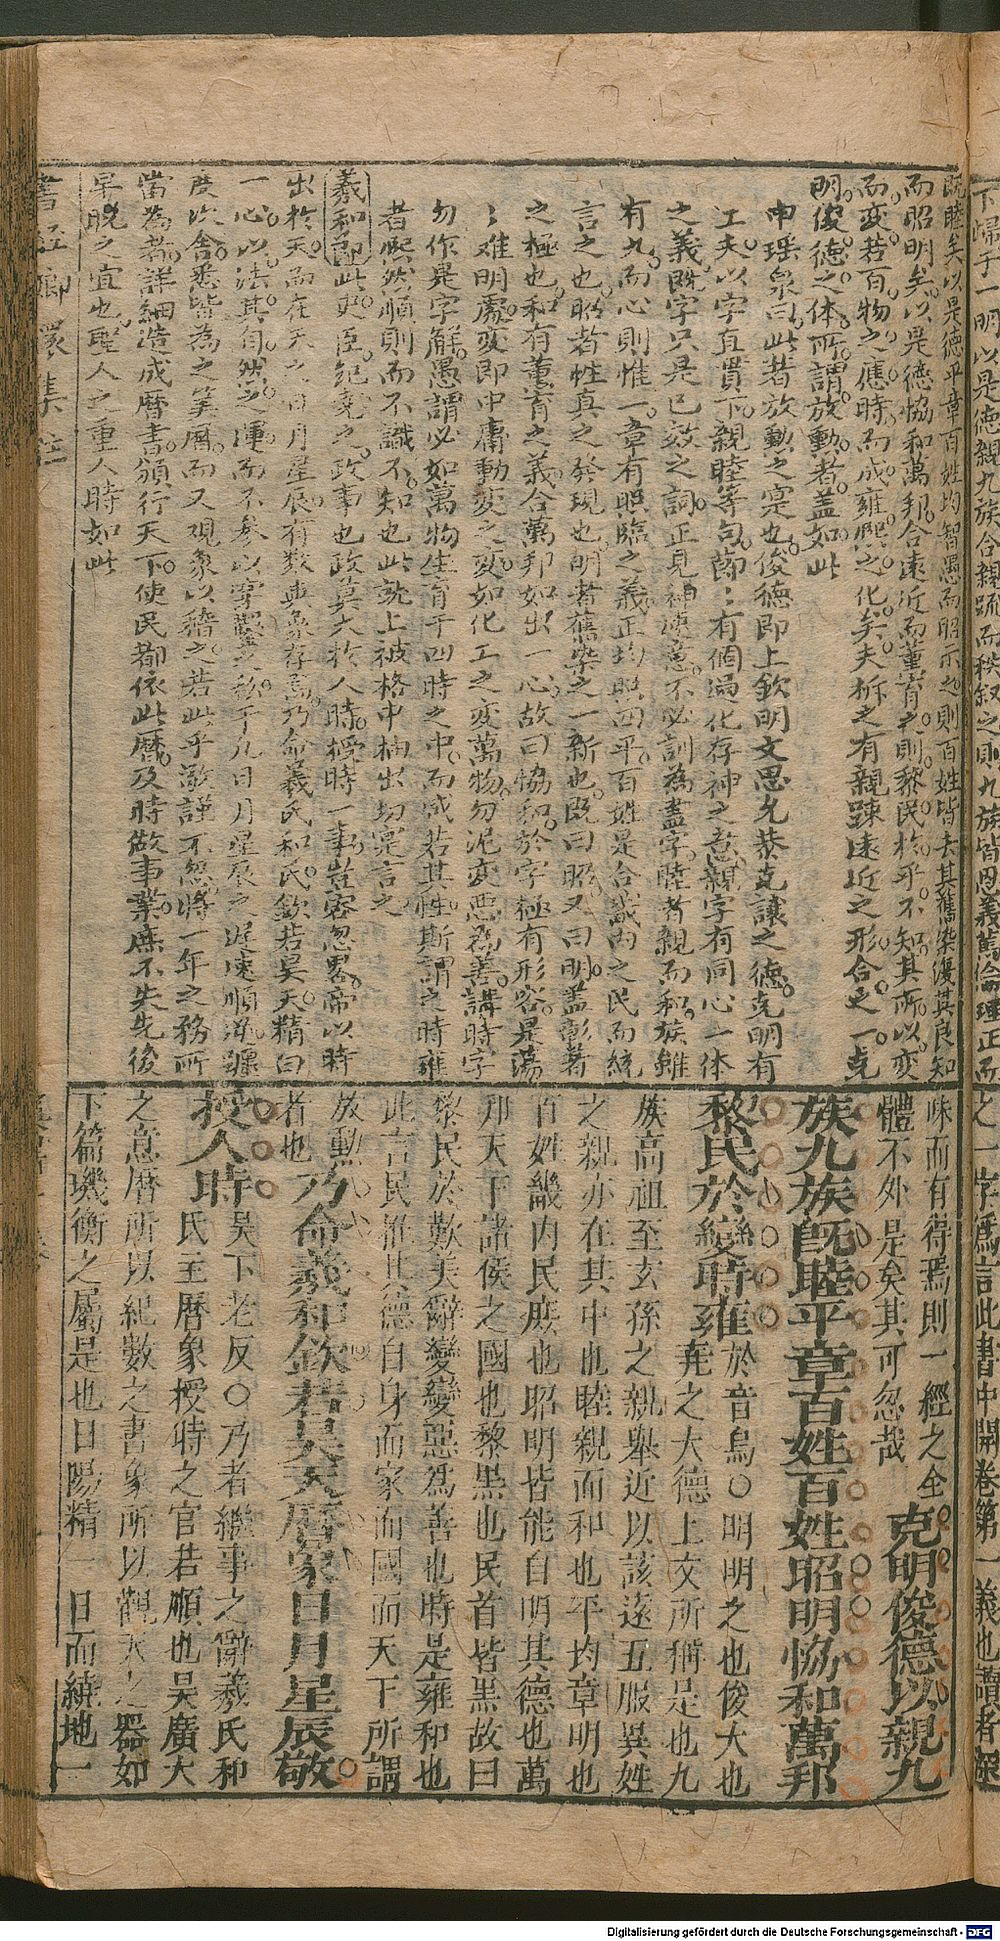 既睦矣以是德平章百姓均智愚而昭示之則百姓皆去其舊染復其良知
而昭明矣以是德恊和萬邦合遠近而董育之則黎民於乎不知其所以變
而変若百物之應時而成雍熙之化矣夫析之有親踈遠近之形合之一克
明俊德之体所謂放勳者盖如此
申瑶泉曰此著放勳之寔也俊德即上欽明文思允恭克讓之德克明有
工夫以字直貫下親睦等句莭〻有個過化存神之意親字有同心一体
之義既字只是已效之詞正見神速意不必訓為盡字睦者親而和族雖
有九而心則惟一章有照臨之義正均照四平百姓是合畿內之民而統
言之也昭者性真之発現也明者舊染之一新也既曰昭又曰明盖彰著
之極也和有董育之義合萬邦如出一心故曰恊和於字極有形容是蕩
〻难明處変即中庸動変之変如化工之変萬物勿泥変惡為善講時字
勿作是字解愚謂必如萬物生育于四時之中而咸若其性斯謂之時雍
者熙然順則而不識不知也此就上被格中抽出切寔言之
羲和莭此史臣紀堯之政事也政莫大於人時授時一事豈容忽畧帝以時
出於天而在天之日月星辰有数與象存焉乃命羲氏和氏欽若昊天精白
一心以法其自然之運而不参以穿鑿之私于凡日月星辰之遲速順逆躔
度次舍悉皆為之筭曆而又观象以稽之若此乎敬謹不怠將一年之務所
當為者詳細造成曆書頒行天下使民都依此曆及時做事業庶不失先後
早晚之宜也聖人之重人時如此
味而有得焉則一經之全
體不外是矣其可忽哉 克明俊德以親九
族九族旣睦平章百姓百姓昭明恊和萬邦
黎民於變時雍於音烏○明明之也俊大也
堯之大德上文所稱是也九
族高祖至玄孫之親舉近以該遠五服異姓
之親亦在其中也睦親而和也平均章明也
百姓畿內民庶也昭明皆能自明其德也萬
邦天下諸侯之國也黎黒也民首皆黒故曰
黎民於歎美辭變變惡爲善也時是雍和也
此言堯推其德自身而家而國而天下所謂
放勳
者也 乃命羲和欽若昊天曆象日月星辰敬
授人時昊下老反○乃者繼事之辭羲氏和
氏主曆象授時之官若順也昊廣大
之意曆所以紀數之書象所以觀天之器如
下篇璣衡之屬是也日陽精一日而繞地一
書經 集註
下
明以是德親九族合親疏而秩敘之則九族皆恩義篤倫理正而
之一字爲言此書中開卷第一義也讀者深
Digitalisierung gefördert durch die Deutsche Forschungsgemeinschaft - DFG